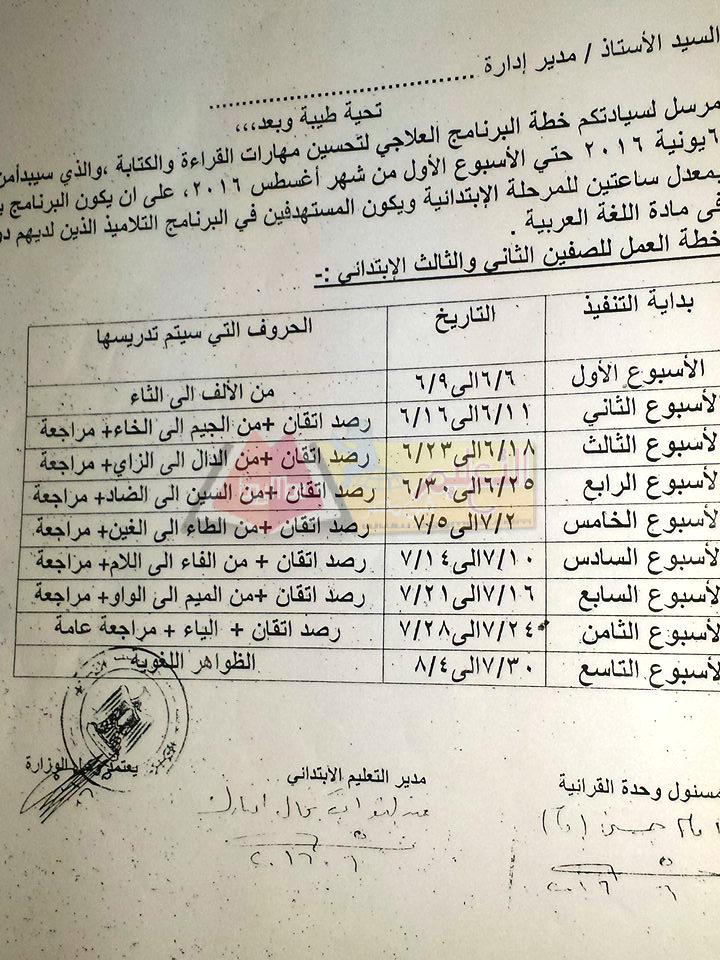 السيد الأستاذ / مدير إدارة ........................................
تحية طيبة وبعد،،،
مرسل لسيادتكم خطة البرنامج العلاجي لتحسين مهارات القراءة والكتابة ،والذي سيبدأمن
٦يونية ٢٠١٦ حتي الأسبوع الأول من شهر أغسطس ٢٠١٦، على ان يكون البرنامج
بمعدل ساعتين للمرحلة الإبتدائية ويكون المستهدفين في البرنامج التلاميذ الذين لديهم
فى مادة اللغة العربية .
خطة العمل للصفين الثاني والثالث الإبتدائي :-
بداية التنفيذ التاريخ الحروف التي سيتم تدريسها
الأسبوع الأول ٦/٦الى٦/٩ من الألف الى الثاء
لأسبوع الثاني ٦/١١الى٦/١٦ رصد اتقان +من الجيم الى الخاء+ مراجعة
لأسبوع الثالث ٦/١٨الى٦/٢٣ رصد اتقان +من الدال الى الزاي+ مراجعة
لأسبوع الرابع ٦/٢٥الى٦/٣٠ رصد اتقان +من السين الى الضاد+ مراجعة
لأسبوع الخامس ٧/٢الى٧/٥ رصد اتقان +من الطاء الى الغين+ مراجعة
لأسبوع السادس ٧/١٠الى٧/١٤ رصد اتقان + من الفاء الى اللام+ مراجعة
لأسبوع السابع ٧/١٦الى٧/٢١ رصد اتقان +من الميم الى الواو+ مراجعة
لأسبوع الثامن ٧/٢٤الى٧/٢٨ رصد اتقان + الياء + مراجعة عامة
لأسبوع التاسع ٧/٣٠الى٨/٤ الظواهر اللغوية
مسئول وحدة القرائية مدير التعليم الابتدائي يعتمد وكيل الوزارة